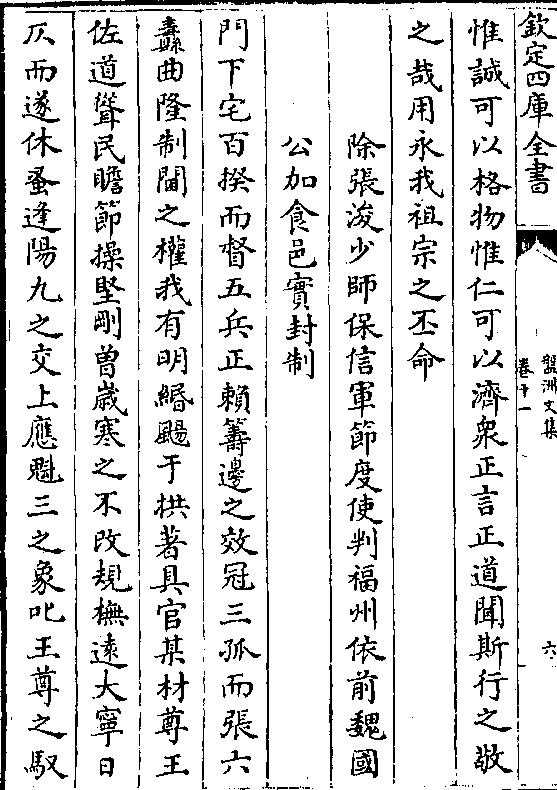 欽定四庫全書
盤洲文集
卷十一
六
惟誠可以格物惟仁可以濟衆正言正道聞斯行之敬
之哉用永我祖宗之丕命
除張浚少師保信軍節度使判福州依前魏國
公加食邑實封制
門下宅百揆而督五兵正賴籌邊之效冠三孤而張六
纛曲隆制閫之權我有明緡颺于拱著具官某材尊王
佐道聳民瞻節操堅剛曽歳寒之不改規橅逺大寧日
仄而遂休蚤逢陽九之交上應魁三之象叱王尊之馭